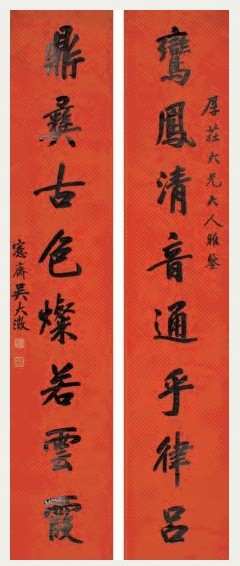 厚莊大兄大人雅鑒
鸞鳳清音通乎律呂
鼎彝古色燦若雲霞
愙齋吳大澂